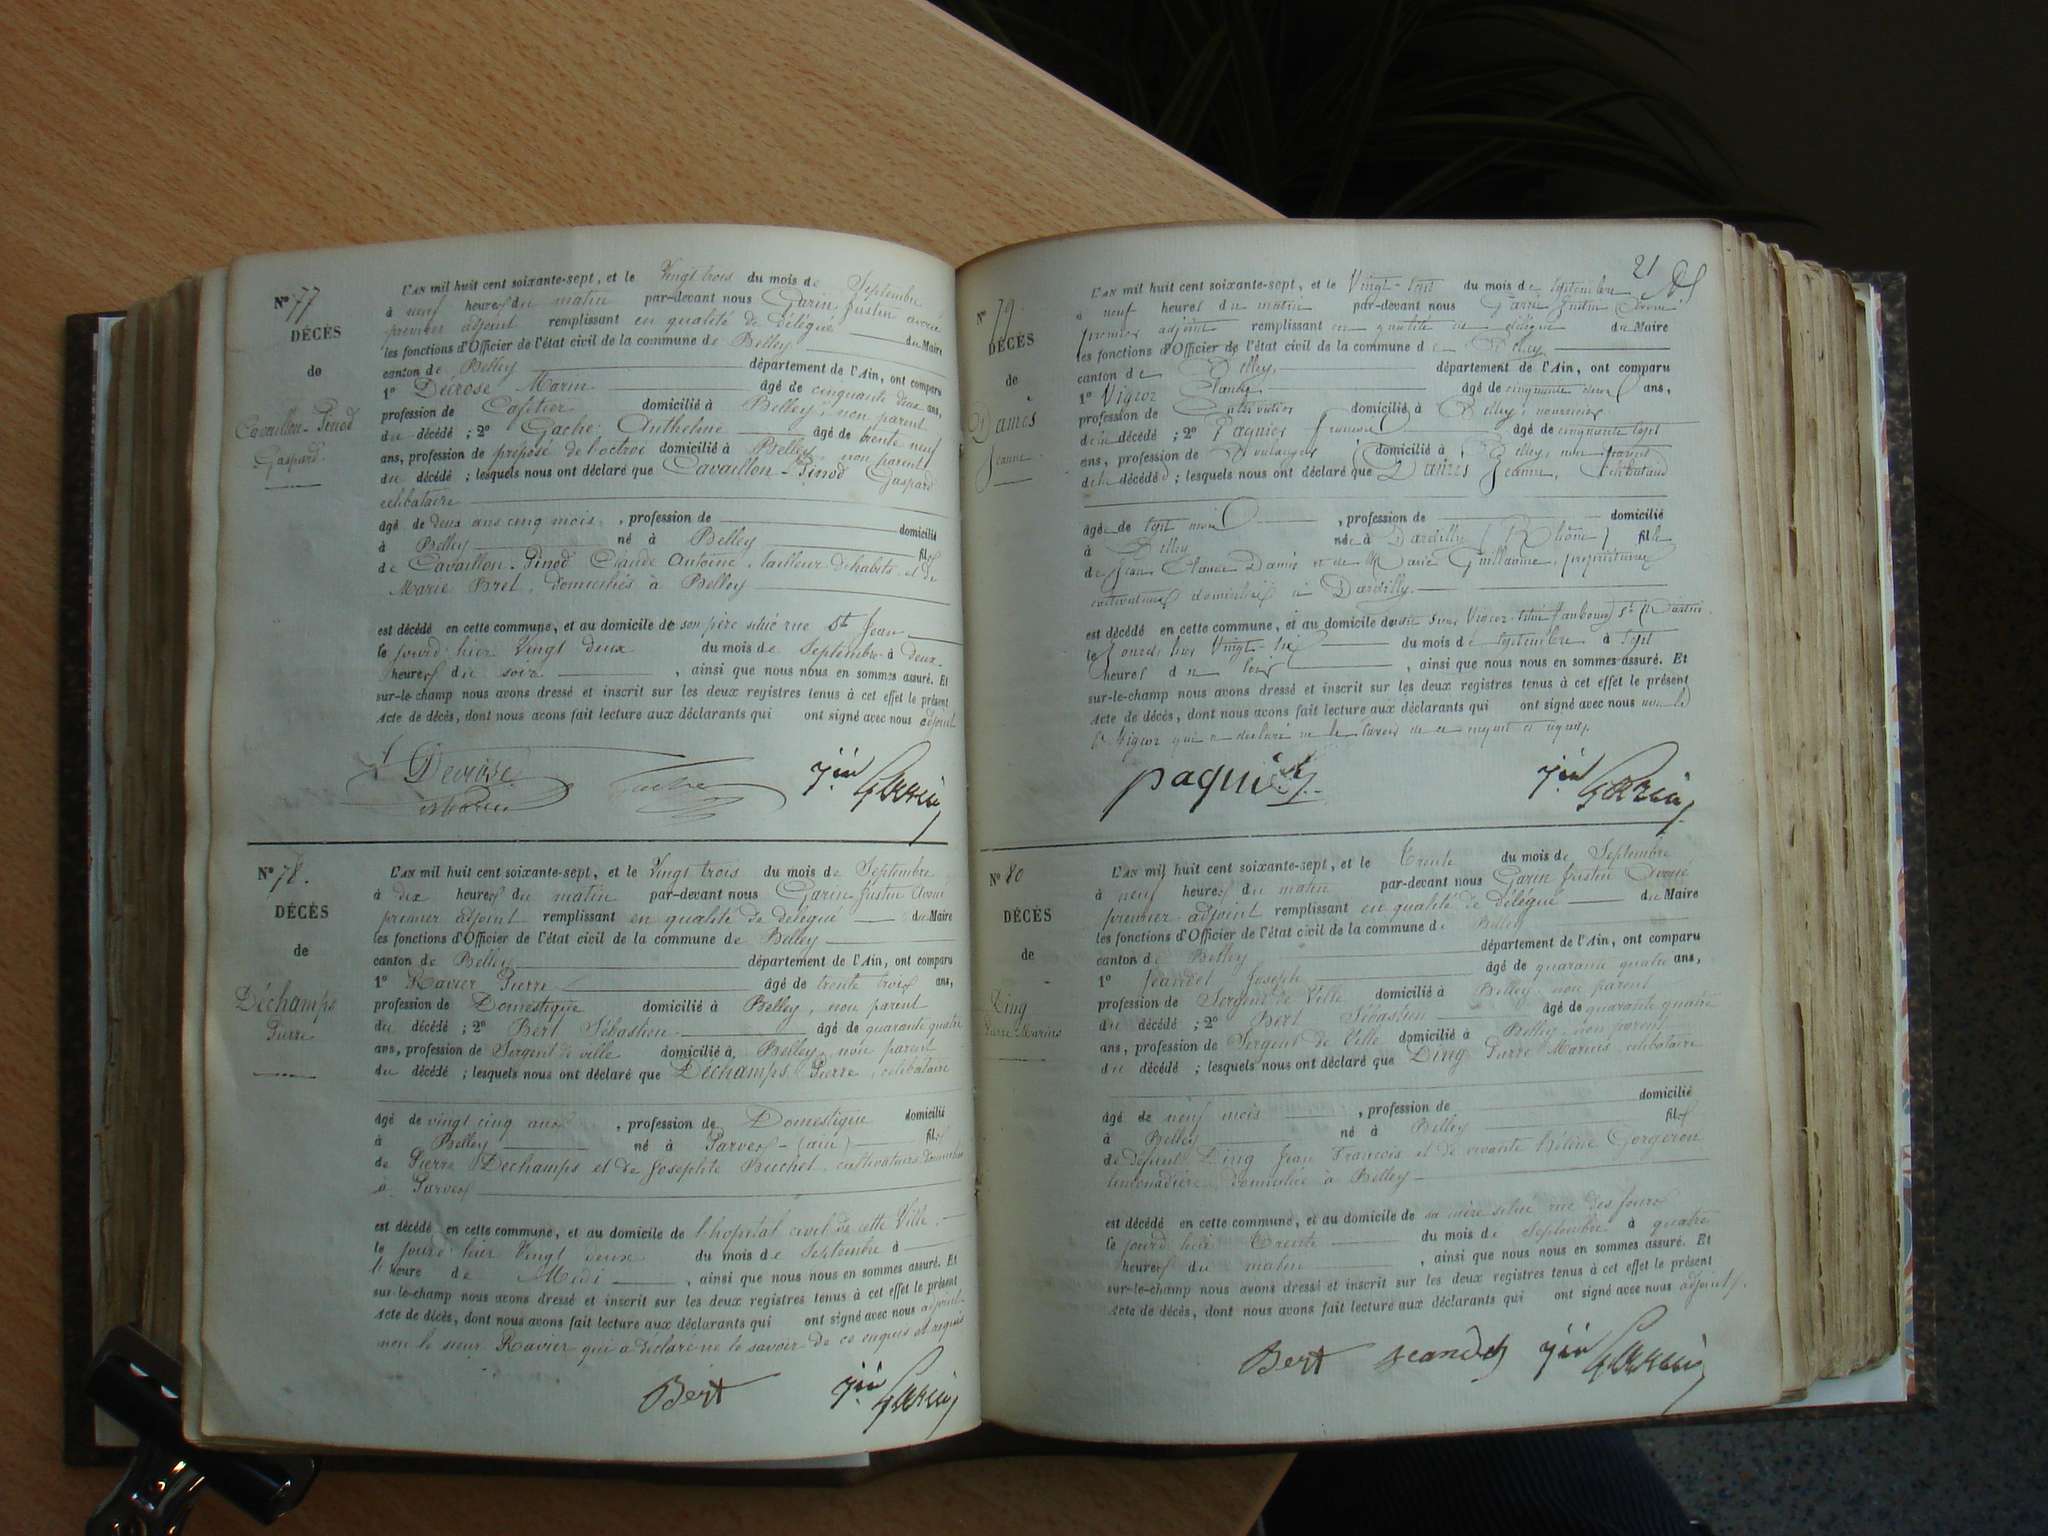 Nº 77
DÉCÈS
de
Cavaillon-Pinod
Gaspard.
L'AN mil huit cent soixante-sept, et le Vingt trois du mois de Septembre
à neuf heures du matin par-devant nous Garin Justin avoué
premier adjoint remplissant en qualité de délégué du Maire
les fonctions d'Officier de l'état civil de la commune de Belley
canton de Belley département de l'Ain, ont comparu
1º Décrose Marin âgé de cinquante deux ans,
profession de Cafetier domicilié à Belley, non parent
du décédé ; 2º Gache Anthelme âgé de trente neuf
ans, profession de préposé de l'octroi domicilié à Belley, non parent
du décédé ; lesquels nous ont déclaré que Cavaillon-Pinod Gaspard
célibataire
âgé de deux ans cinq mois , profession de domicilié
à Belley né à Belley fils
de Cavaillon-Pinod Claude Antoine, tailleur d'habits, et de
Marie Bret, domiciliés à Belley
est décédé en cette commune, et au domicile de son père situé rue St Jean
le jourd'hier Vingt deux du mois de Septembre à deux
heures du soir , ainsi que nous nous en sommes assuré. Et
sur-le-champ nous avons dressé et inscrit sur les deux registres tenus à cet effet le présent
acte de décès, dont nous avons fait lecture aux déclarants qui ont signé avec nous adjoint
Decrose Gache Jin Garin
Marin
Nº 78.
DÉCÈS
de
Déchamps
Pierre
L'AN mil huit cent soixante-sept, et le Vingt trois du mois de Septembre
à dix heures du matin par-devant nous Garin Justin Avoué
premier adjoint remplissant en qualité de délégué du Maire
les fonctions d'Officier de l'état civil de la commune de Belley
canton de Belley département de l'Ain, ont comparu
1º Ravier Pierre âgé de trente trois ans,
profession de Domestique domicilié à Belley, non parent
du décédé ; 2º Bert Sébastien âgé de quarante quatre
ans, profession de Sergent de ville domicilié à Belley, non parent
du décédé ; lesquels nous ont déclaré que Déchamps Pierre, célibataire
âgé de vingt cinq ans , profession de Domestique domicilié
à Belley né à Parves - (ain) fils
de Pierre Déchamps et de Josephte Buchet, cultivateurs domiciliés
à Parves
est décédé en cette commune, et au domicile de l'hopital civil de cette Ville.
le jourd'hier Vingt deux du mois de Septembre à
l'heure de Midi , ainsi que nous nous en sommes assuré. Et
sur-le-champ nous avons dressé et inscrit sur les deux registres tenus à cet effet le présent
acte de décès, dont nous avons fait lecture aux déclarants qui ont signé avec nous adjoint
non le sieur Ravier qui a déclaré ne le savoir de ce enquis et requis
Bert Jin Garin
21
Nº 79.
DÉCÈS
de
Damès
Jeanne
L'AN mil huit cent soixante-sept, et le Vingt-sept du mois de septembre
à neuf heures du matin par-devant nous Garin Justin Avoué
premier adjoint remplissant en qualité de délégué du Maire
les fonctions d'Officier de l'état civil de la commune de Belley
canton de Belley, département de l'Ain, ont comparu
1º Vigeor Claude. âgé de cinquante deux ans,
profession de Cultivateur domicilié à Belley, nourricier
de la décédé ; 2º Paquier François âgé de cinquante sept
ans, profession de Boulanger domicilié à Belley, non parent
de la décédée ; lesquels nous ont déclaré que Damès Jeanne, Célibataire
âgée de sept mois , profession de domicilié
à Belley née à Dardilly (Rhône) fille
de Jean Claude Damès et de Marie Guillaume, propriétaires
cultivateurs domiciliés à Dardilly.
est décédé en cette commune, et au domicile du sieur Vigeor situé faubourg St Martin.
le Jourd'hier Vingt-six du mois de septembre à sept
heures du soir , ainsi que nous nous en sommes assuré. Et
sur-le-champ nous avons dressé et inscrit sur les deux registres tenus à cet effet le présent
acte de décès, dont nous avons fait lecture aux déclarants qui ont signé avec nous non le
Sr Vigeor qui a déclaré ne le savoir de ce enquis et requis.
paquier Jin Garin
Nº 80
DÉCÈS
de
Ding
Pierre Marius
L'AN mil huit cent soixante-sept, et le Trente du mois de Septembre
à neuf heures du matin par-devant nous Garin Justin Avoué
premier adjoint remplissant en qualité de délégué du Maire
les fonctions d'Officier de l'état civil de la commune de Belley
canton de Belley département de l'Ain, ont comparu
1º Jeandet Joseph âgé de quarante quatre ans,
profession de Sergent de Ville domicilié à Belley, non parent
du décédé ; 2º Bert Sébastien âgé de quarante quatre
ans, profession de Sergent de Ville domicilié à Belley, non parent
du décédé ; lesquels nous ont déclaré que Ding Pierre Marius, célibataire
âgé de neuf mois , profession de domicilié
à Belley né à Belley fils
de défunt Ding Jean François et de vivante Hélène Gorgeron
limonadière, domiciliée à Belley
est décédé en cette commune, et au domicile de sa mère situé rue des fours
le jourd'hui Trente du mois de Septembre à quatre
heures du matin , ainsi que nous nous en sommes assuré. Et
sur-le-champ nous avons dressé et inscrit sur les deux registres tenus à cet effet le présent
acte de décès, dont nous avons fait lecture aux déclarants qui ont signé avec nous adjoint.
Bert Jeandet Jin Garin